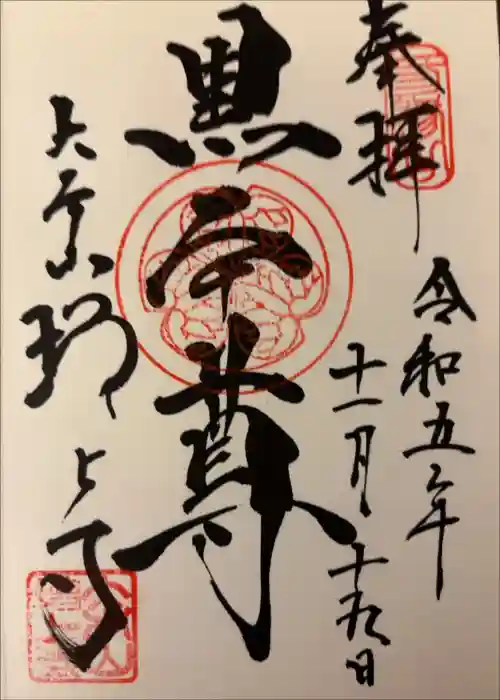 奉拝
令和五年
十一月十九日
黒本尊
大本山
増上寺